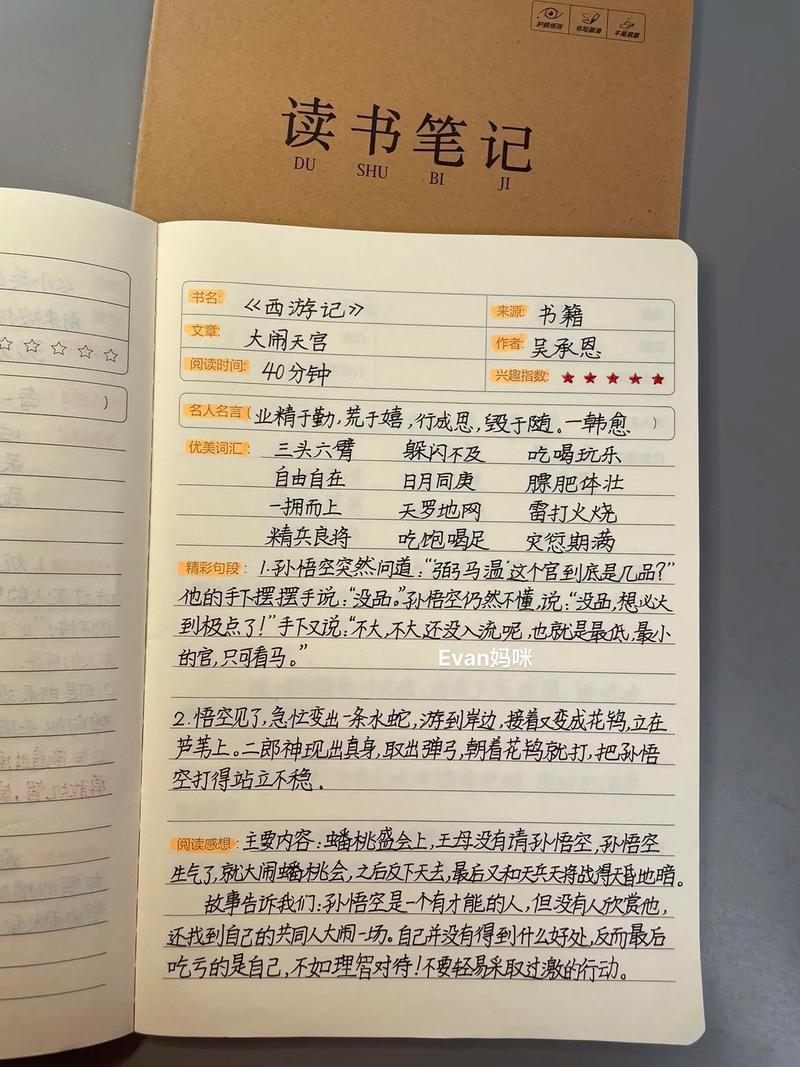 护眼纸张 书写顺滑 不易洇墨
读书笔记
DU SHU BI JI
书名: 《西游记》 来源: 书籍
文章: 大闹天宫 作者: 吴承恩
阅读时间: 40分钟 兴趣指数: ★★★★★
名人名言( 业精于勤,荒于嬉,行成思,毁于随。—韩愈 )
优美词汇: 三头六臂 躲闪不及 吃喝玩乐
自由自在 日月同庚 膘肥体壮
一拥而上 天罗地网 雷打火烧
精兵良将 吃饱喝足 灾愆期满
精彩句段: 1.孙悟空突然问道:“弼马温'这个官到底是几品?”
他的手下摆摆手说:“没品。”孙悟空仍然不懂,说:“没品,想必大
到极点了!”手下又说:“不大,不大,还没入流呢,也就是最低,最小
的官,只可看马。”
Evan妈咪
2.悟空见了,急忙变出一条水蛇,游到岸边,接着又变成花鸨,立在
芦苇上。二郎神现出真身,取出弹弓,朝着花鸨就打,把孙悟
空打得站立不稳.
阅读感想: 主要内容:蟠桃盛会上,王母没有请孙悟空,孙悟空
生气了,就大闹蟠桃会,之后反下天去,最后又和天兵天将战得天昏地暗。
故事告诉我们:孙悟空是一个有才能的人,但没有人欣赏他,
还找到自己的共同人大闹一场。自己并没有得到什么好处,反而最后
吃亏的是自己,不如理智对待!不要轻易采取过激的行动。